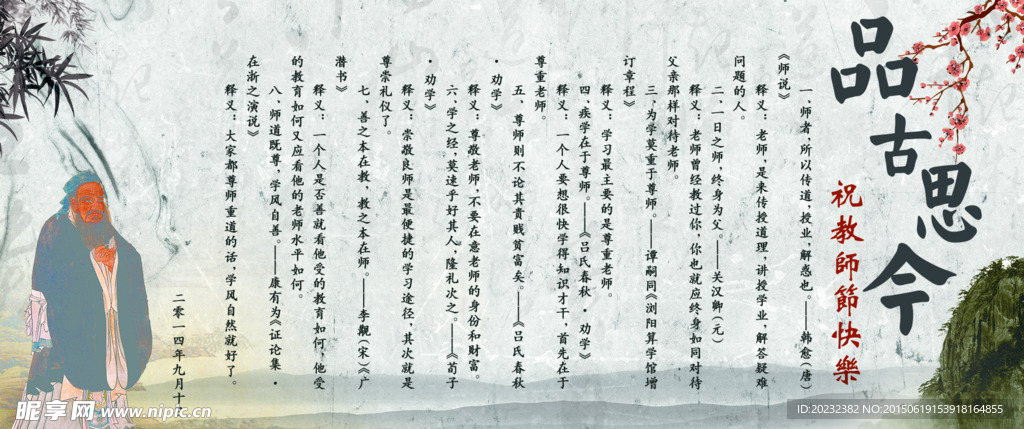 品古思今
祝教師節快樂
一、师者，所以传道，授业，解惑也。——韩愈（唐）
《师说》
释义：老师，是来传授道理，讲授学业，解答疑难
问题的人。
二、一日之师，终身为父。——关汉卿（元）
释义：老师曾经教过你，你也就应终身如同对待
父亲那样对待老师。
三、为学莫重于尊师。——谭嗣同《浏阳算学馆增
订章程》
释义：学习最主要的是尊重老师。
四、疾学在于尊师。——《吕氏春秋·劝学》
释义：一个人要想很快学得知识才干，首先在于
尊重老师。
五、尊师则不论其贵贱贫富矣。——《吕氏春秋
·劝学》
释义：尊敬老师，不要在意老师的身份和财富。
六、学之经，莫速乎好其人，隆礼次之。——《荀子
·劝学》
释义：崇敬良师是最便捷的学习途径，其次就是
尊崇礼仪了。
七、善之本在教，教之本在师。——李觏（宋）《广
潜书》
释义：一个人是否善就看他受的教育如何，他受
的教育如何又应看他的老师水平如何。
八、师道既尊，学风自善。——康有为《证论集·
在浙之演说》
释义：大家都尊师重道的话，学风自然就好了。
二零一四年九月十
昵享网 www.nipic.cn
ID:20232382 NO:20150619153918164855